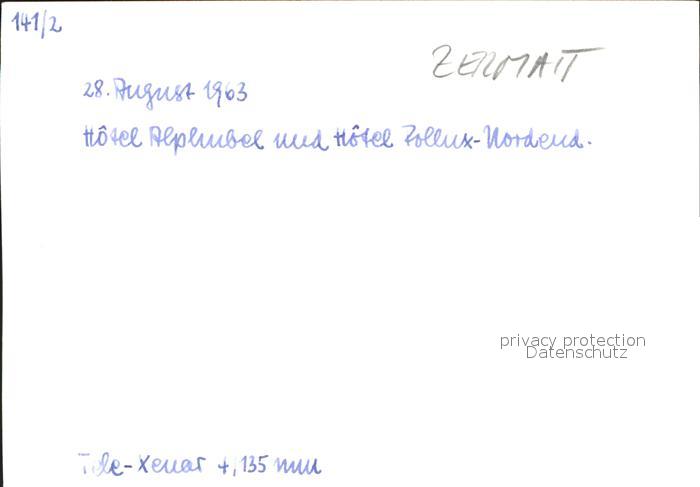 141/2
ZERMATT
28. August 1963
Hôtel Alphubel und Hôtel Pollux-Nordend.
privacy protection
Datenschutz
Tele-Xenar 4, 135 mm